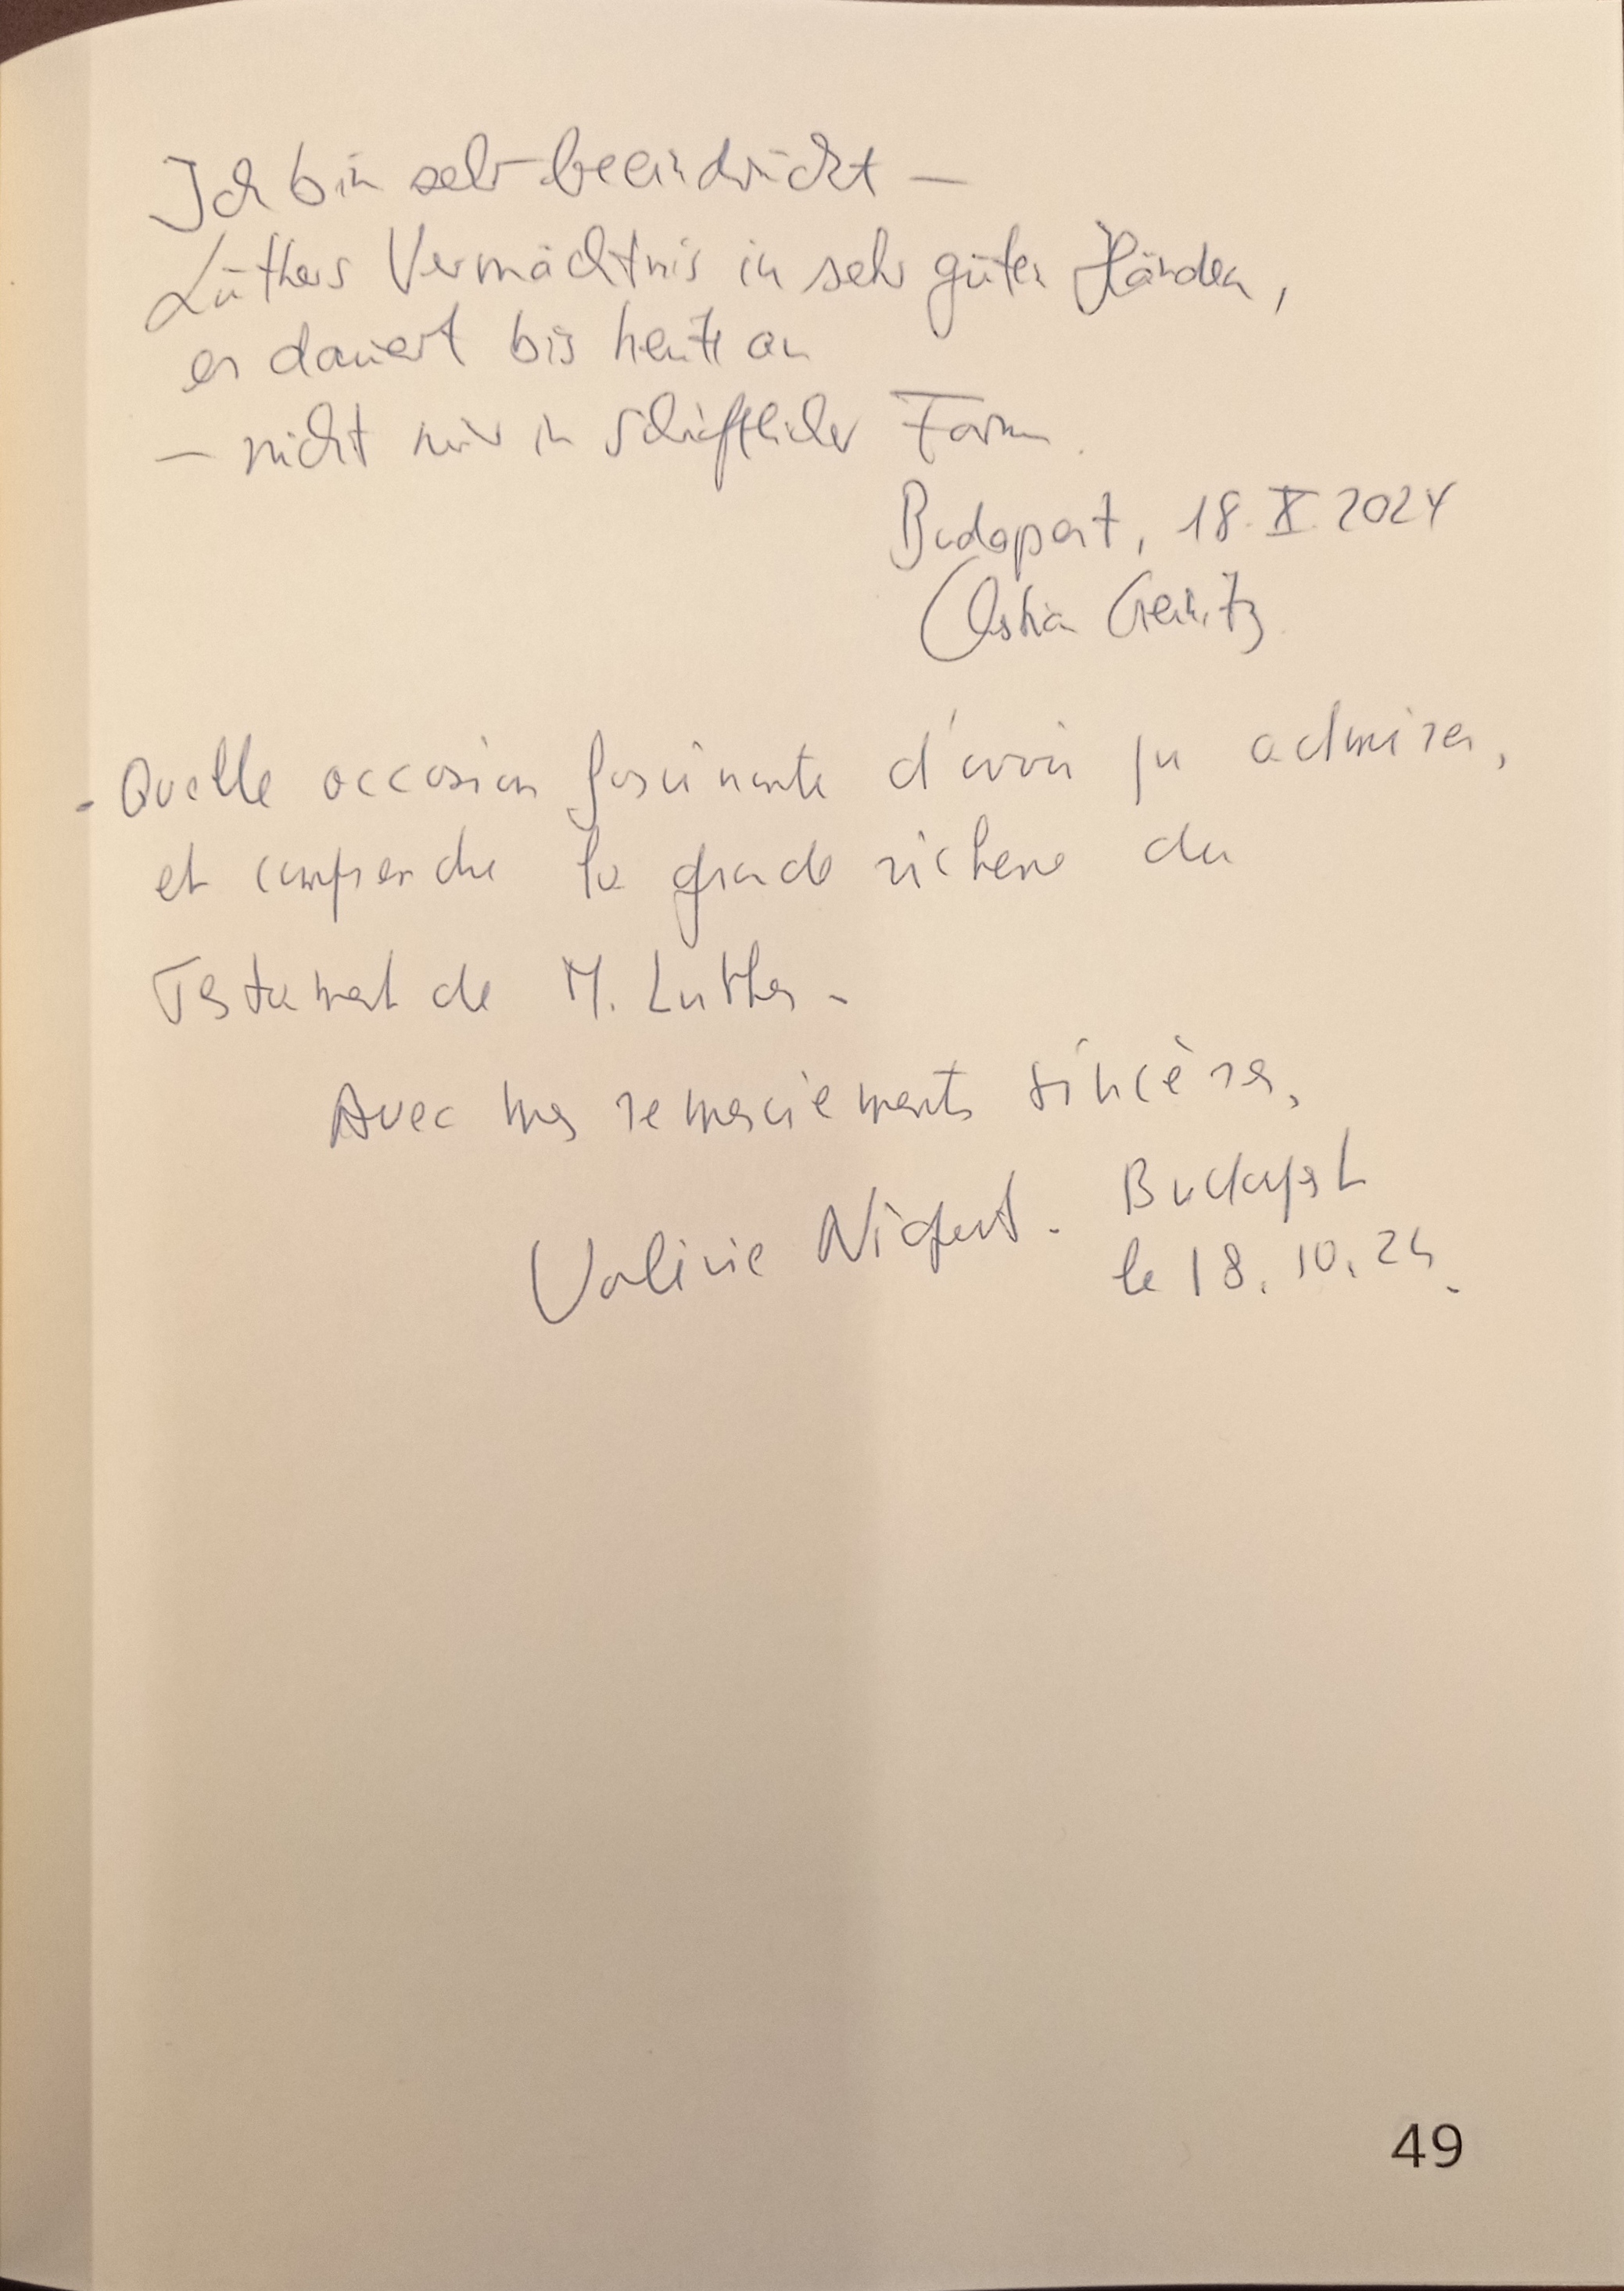 Ich bin sehr beeindruckt —
Luthers Vermächtnis in sehr guten Händen,
es dauert bis heute an
— nicht nur in schriftlicher Form.
Budapest, 18. X. 2024
- Quelle occasion fascinante d'avoir pu admirer,
et comprendre la grande richesse du
Testament de M. Luther -
Avec mes remerciements sincères,
Budapest
le 18.10.24.
49